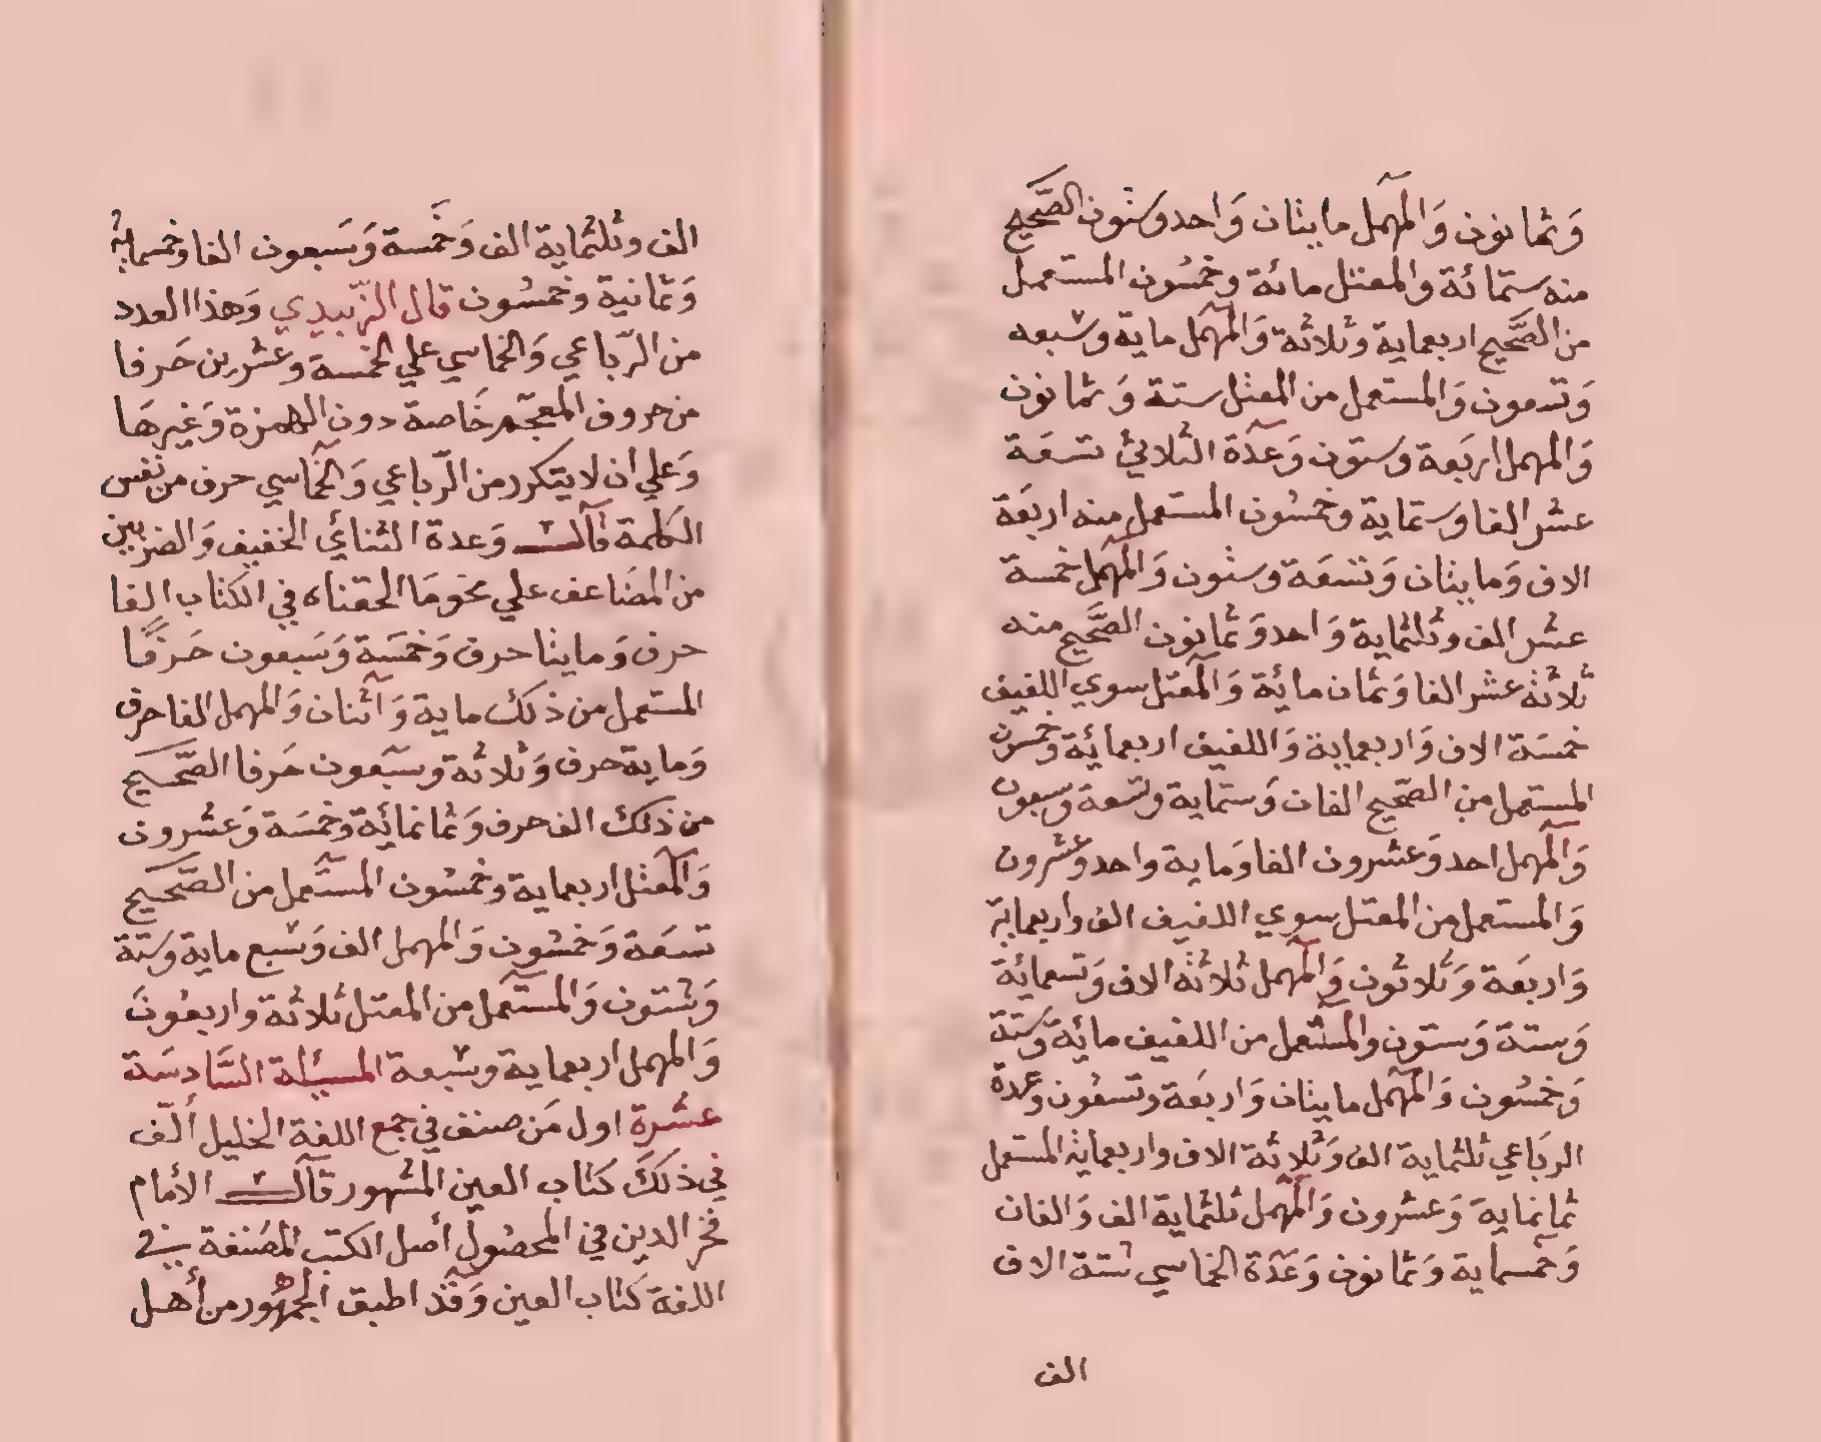 وَثمانون وَالمهمل مايتان وَاحد وستون الصَّحيح
منه ستمائة والمعتل مائة وخمسُون المستعمل
من الصَّحيح اربعماية وثلاثة وَالمهمل ماية وسَبعه
وَتسعون وَالمستعمل من المعتل ستة وَثمانون
وَالمهمل اربَعة وستون وَعدّة الثلاثيّ تسعَة
عشر الفا وستماية وخمسُون المستعمل منه اربعَة
الاف وَمايتان وَتسعَة وستون وَالمهمل خمسة
عشر الف وثلثماية وَاحد وَثمانون الصَّحيح منه
ثلاثة عشر الفا وَثمان مائة وَالمعتل سوي اللفيف
خمسَة الاف وَاربعماية وَاللفيف اربعمائة وَخمسون
المستعمل من الصَّحيح الفان وَستماية وتسعة وَسبعون
وَالمهمل احد وَعشرون الفا وَماية واحد وعشرون
وَالمستعمل من المعتل سوي اللفيف الف واربعماية
وَاربعَة وَثلاثون وَالمهمل ثلاثة الاف وَتسعمائة
وَستة وَستون والمستعمل من اللفيف مائة وَستة
وَخمسُون وَالمهمل مايتان وَاربعَة وتسعُون وعدة
الربَاعي ثلثماية الف وَثلاثة الاف واربعماية المستعمل
ثمانماية وَعشرون وَالمهمل ثلثماية الف وَالفان
وَخمسماية وَثمانون وَعدّة الخماسي ستة الاف
الف
الف وثلثماية الف وَخمسة وَسَبعون الفا وخمسماية
وَثمانية وخمسُون قال الزّبيدي وَهذا العدد
من الرّباعي وَالخماسي علي الخمسة وعشرين حَرفا
من حروف المعجم خَاصة دون الهمزة وَغيرهَا
وَعلي أن لا يتكرر من الرّباعي وَالخماسي حرف من نفس
الكلمة قال وَعدة الثنائي الخفيف وَالضربين
من المضَاعف علي نحو مَا الحقناه في الكتاب الفا
حرف وَمايتا حرف وَخمسَة وَسَبعون حَرفًا
المستعمل من ذلك ماية وَاثنان وَالمهمل الفا حرف
وَماية حرف وَثلاثة وسَبعون حَرفا الصَّحيح
من ذلك الف حرف وَثمانمائة وخمسَة وَعشرون
وَالمعتل اربعماية وخمسُون المستعمل من الصَّحيح
تسعَة وَخمسُون وَالمهمل الف وَسبع ماية وَستة
وَستون وَالمستعمل من المعتل ثلاثة واربعُونَ
وَالمهمل اربعماية وسَبعة المسيلة السَّادسَة
عشرة اول مَن صنف في جمع اللغة الخليل ألّف
في ذلكَ كتاب العين المشهور قال الأمام
فخر الدين في المحصُول أصل الكتب المصَنفة في
اللغة كتاب العين وَقد اطبق الجمهُور من أهل